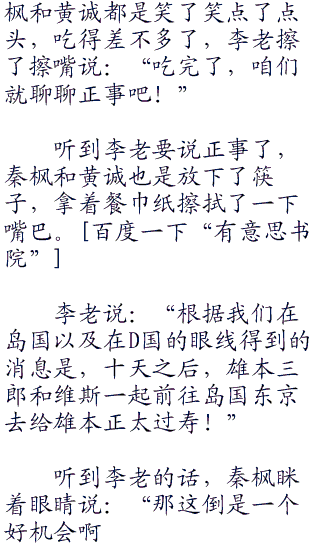 枫和黄诚都是笑了笑点了点
头，吃得差不多了，李老擦
了擦嘴说：“吃完了，咱们
就聊聊正事吧！”
听到李老要说正事了，
秦枫和黄诚也是放下了筷
子，拿着餐巾纸擦拭了一下
嘴巴。[百度一下“有意思书
院”]
李老说：“根据我们在
岛国以及在D国的眼线得到的
消息是，十天之后，雄本三
郎和维斯一起前往岛国东京
去给雄本正太过寿！”
听到李老的话，秦枫眯
着眼睛说：“那这倒是一个
好机会啊